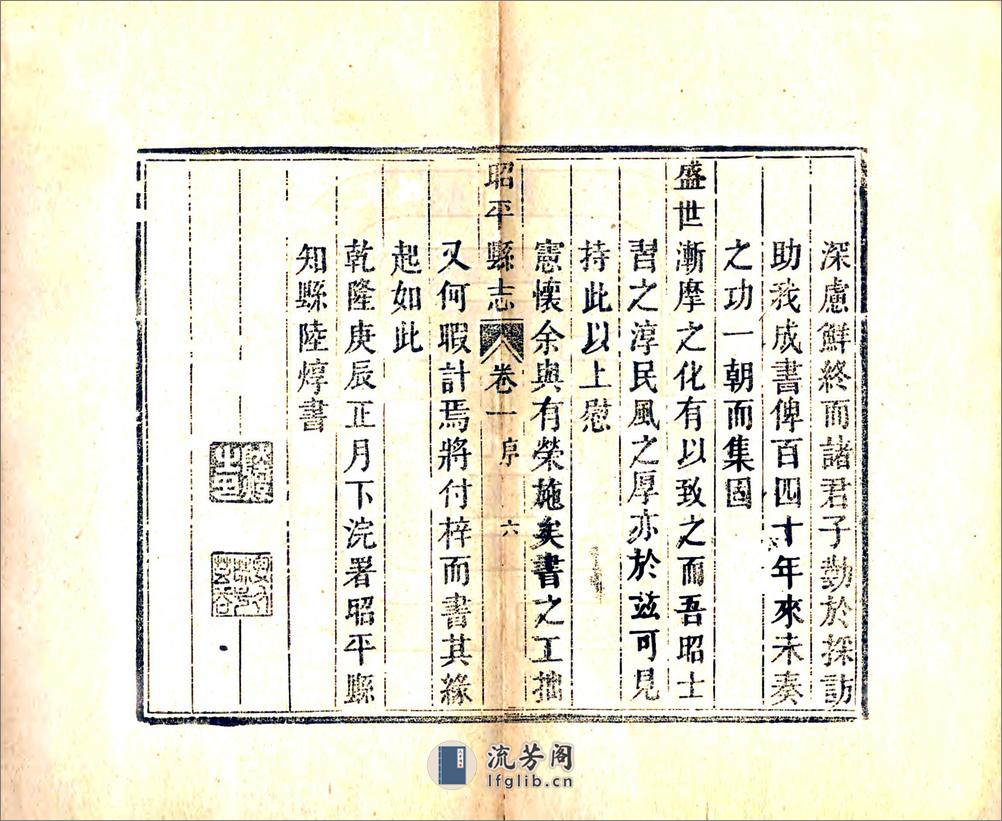 深慮鮮終而諸君子勤於採訪
助我成書俾百四十年來未奏
之功一朝而集固
盛世漸摩之化有以致之而吾昭士
習之淳民風之厚亦於茲可見
持此以上慰
憲懷余與有榮施矣書之工拙
昭平縣志 卷一 序 六
又何暇計焉將付梓而書其緣
起如此
乾隆庚辰正月下浣署昭平縣
知縣陸焞書
流芳阁
lfglib.cn